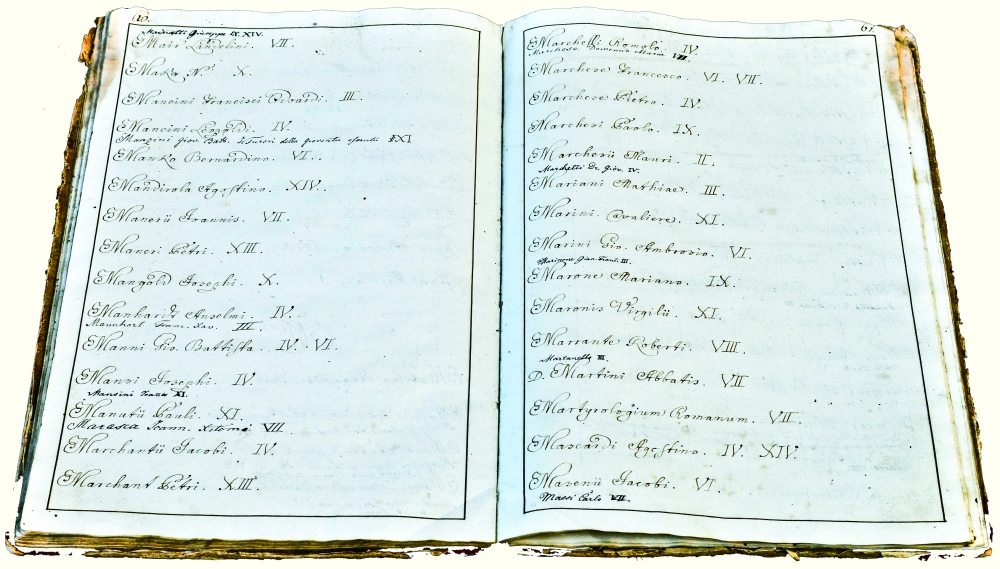 Mair Landelini. VII.
Maka X.
Mancini Francisci Odoardi. III.
Mancini Leopoldi. IV.
Manzini Giov. Batt. della Gioventù XI
Manko Bernardino. VI.
Mandirola Agostino. XIV.
Manerii Ioannis. VII.
Maneri Petri. XIII.
Mangold Iosephi. X.
Manhardt Anselmi. IV.
Manhart Franc. Xav. III.
Manni Gio. Battista. IV. VI.
Mansi Iosephi. IV.
Mansini XI.
Manutii Pauli. XI.
Marasca Ioann. VIII.
Marchantii Iacobi. IV.
Marchant Petri. XIII.
61.
Marchelli Romolo. IV.
Marchese Domenico Maria III.
Marchese Francesco. VI. VII.
Marchese Pietro. IV.
Marchesi Paolo. IX.
Marchesii Mauri. II.
Marchetti Dr. Giov. IV.
Mariani Mathiae. III.
Marini Cavaliere. XI.
Marini Gio. Ambrosio. VI.
Marinone Giov. Franc. III.
Marone Mariano. IX.
Maronis Virgilii. XI.
Marrante Roberti. VIII.
Martarelli III.
D. Martini Abbatis. VII
Martyrologium Romanum. VII.
Mascardi Agostino. IV. XIV.
Masenii Iacobi. VI.
Massi Carlo VII.